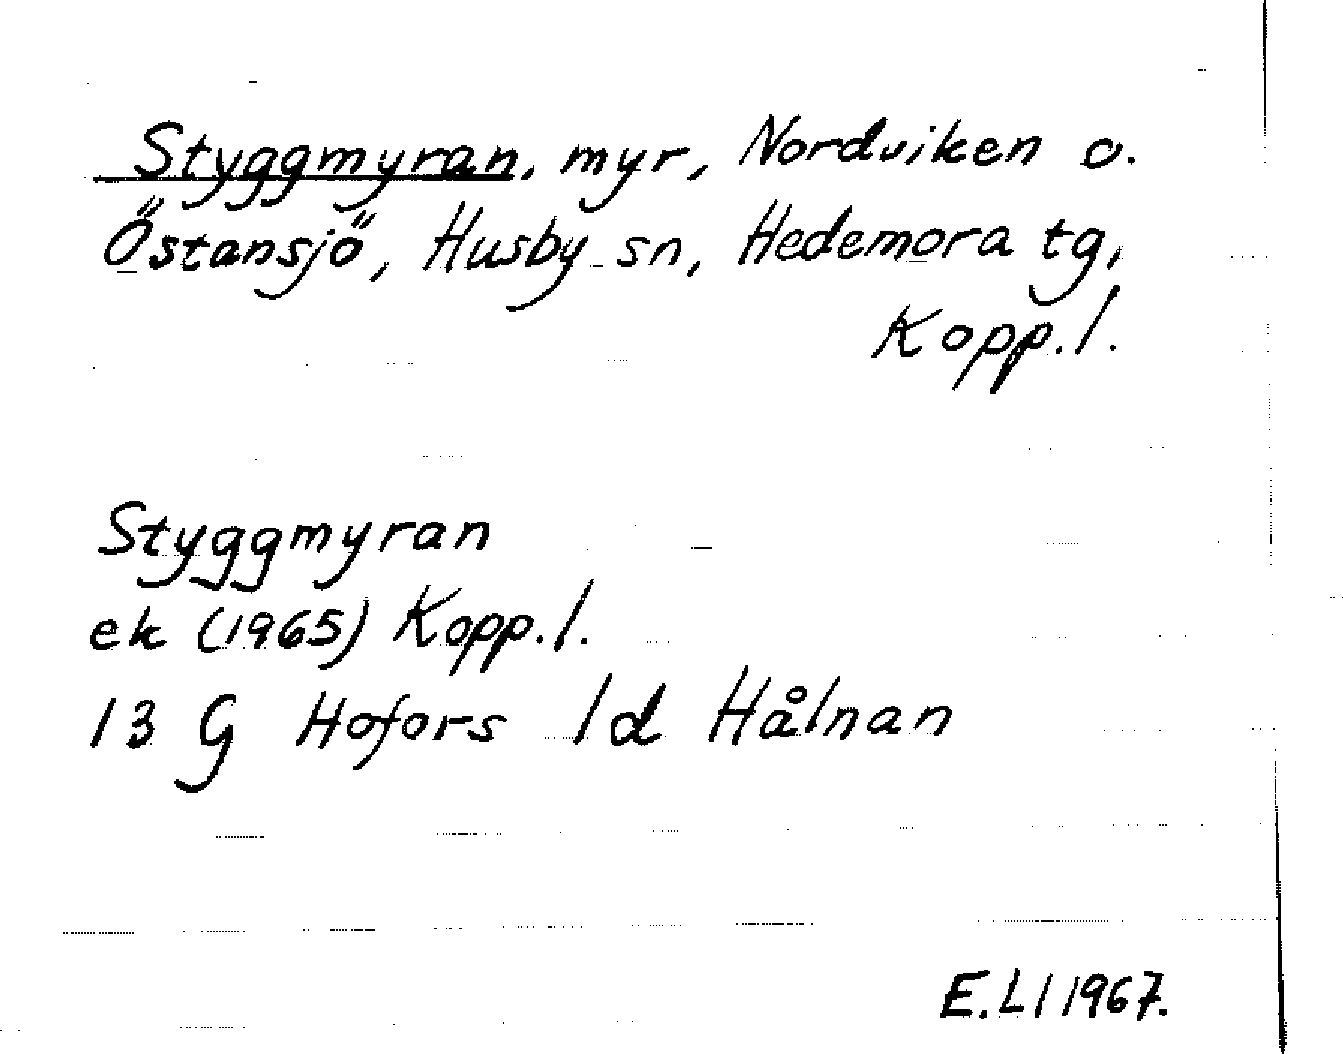 Styggmyran, myr, Nordviken o.
Östansjö, Husby sn, Hedemora tg,
Kopp. l.
Styggmyran
ek (1965) Kopp. l.
13 G Hofors 1d Hålnan
E. Ll 1967.